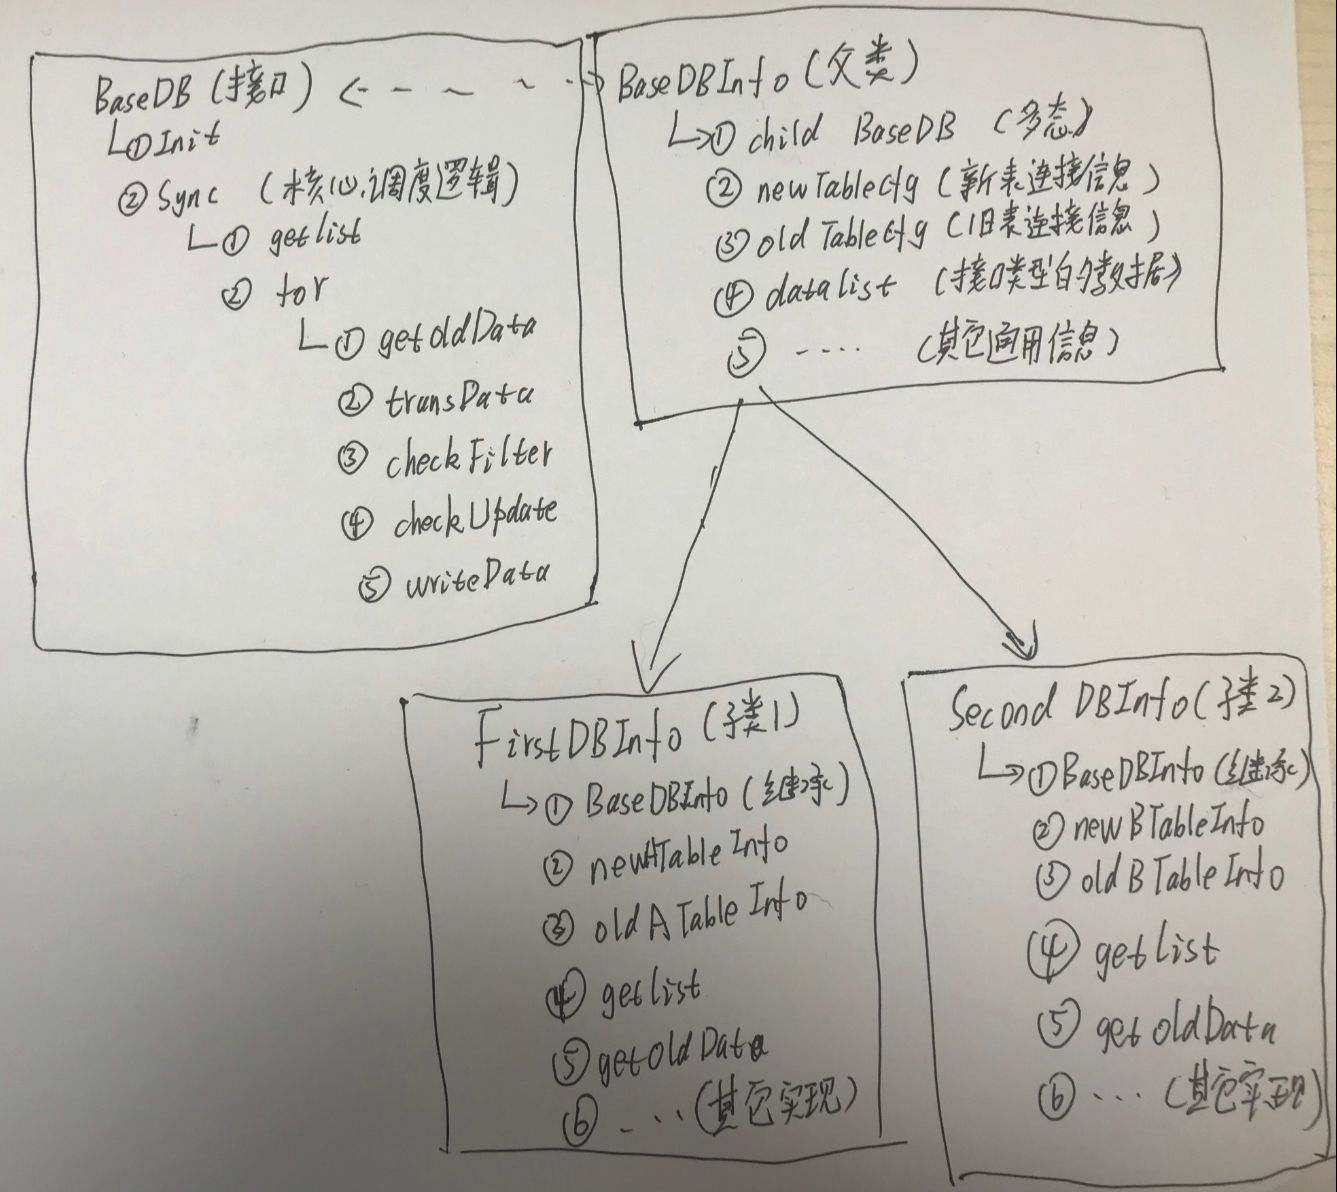 BaseDB (接口)
①Init
②Sync (核心调度逻辑)
① getlist
② for
① getoldData
② transData
③ checkFilter
④ checkUpdate
⑤ writeData
BaseDBInfo (父类)
① child BaseDB (多态)
② newTableCfg (新表连接信息)
③ oldTableCfg (旧表连接信息)
④ datalist (接口类型的数据)
⑤ ···· (其它通用信息)
FirstDBInfo (子类1)
① BaseDBInfo (继承)
② newATableInfo
③ oldATableInfo
④ getlist
⑤ getoldData
⑥ ··· (其它实现)
Second DBInfo (子类2)
① BaseDBInfo (继承)
② newBTableInfo
③ oldBTableInfo
④ getlist
⑤ getoldData
⑥ ··· (其它实现)